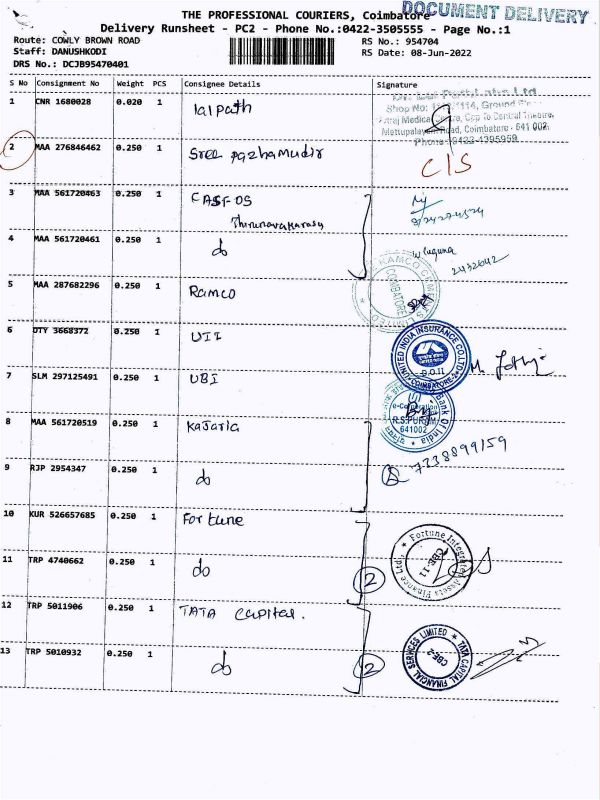 DOCUMENT DELIVERY
THE PROFESSIONAL COURIERS, Coimbatore
Delivery Runsheet - PC2 - Phone No.:0422-3505555 - Page No.:1
Route: COWLY BROWN ROAD RS No.: 954704
Staff: DANUSHKODI RS Date: 08-Jun-2022
DRS No.: DCJB95470401
S No Consignment No Weight PCS Consignee Details Signature
1 CNR 1680028 0.020 1 lalpath
Shop No: Ground
Mettupalayam Road, Coimbatore - 641 002.
Phone: 0422-4395959
2 MAA 276846462 0.250 1 Sree pazhamudir C/S
3 MAA 561720463 0.250 1 CASFOS
Thirunavakarasu
4 MAA 561720461 0.250 1 do
2432642
5 MAA 287682296 0.250 1 Ramco
COIMBATORE
6 OTY 3668372 0.250 1 UII
UNITED INDIA INSURANCE CO.LTD. B.O.II COIMBATORE-2
7 SLM 297125491 0.250 1 UBI
Bank Of India
R.S.PURAM
641002
8 MAA 561720519 0.250 1 Kajaria
7338899159
9 RJP 2954347 0.250 1 do
10 KUR 526657685 0.250 1 Fortune
Fortune Integrated Assets Finance Ltd. CBE-11
11 TRP 4740662 0.250 1 do 2
12 TRP 5011906 0.250 1 TATA Capital.
TATA CAPITAL FINANCIAL SERVICES LIMITED CBE-2
13 TRP 5010932 0.250 1 do 2